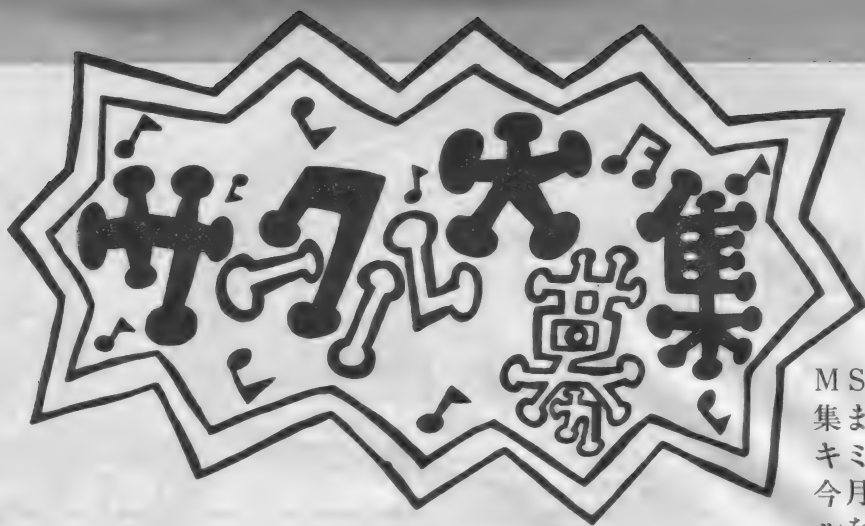 サークル大募集
MS
集ま
キミ
今月